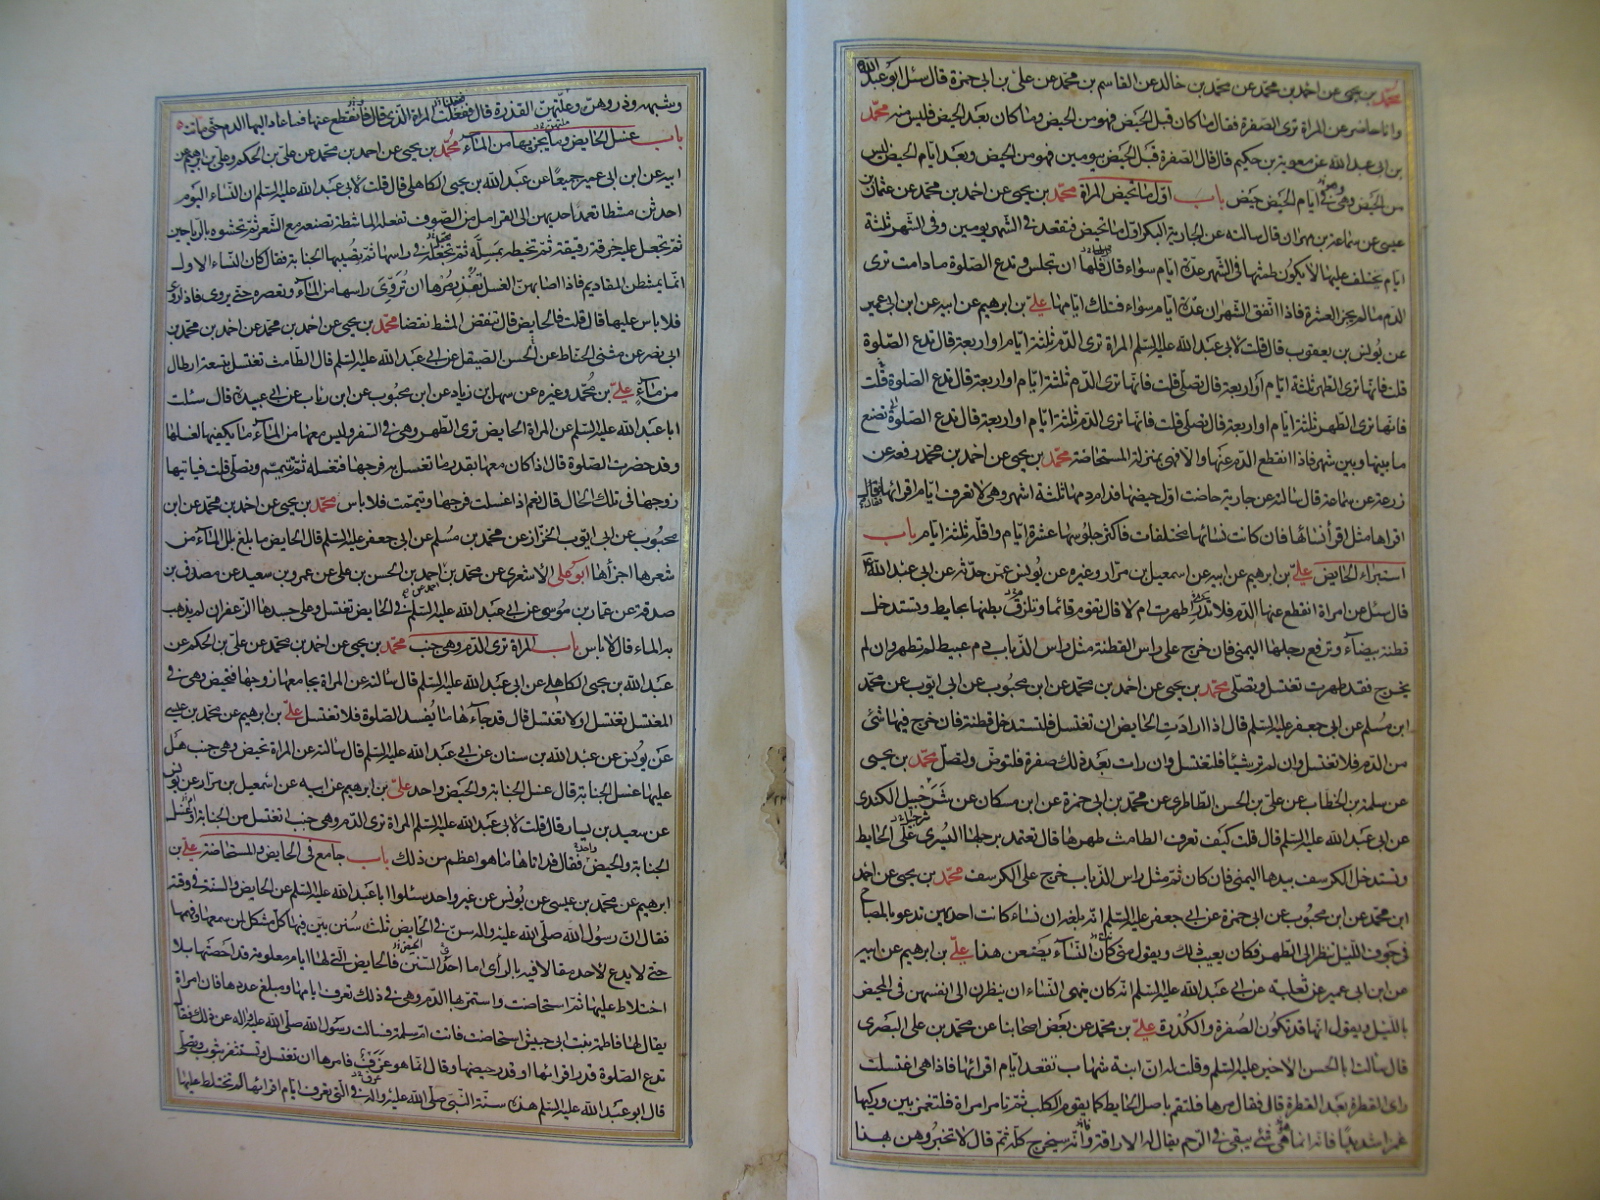 محمد بن يحيى عن احمد بن محمد عن محمد بن خالد عن القاسم بن محمد عن علي بن ابي حمزة قال سئل ابو عبد الله
وانا حاضر عن المراة ترى الصفرة فقال ما كان قبل الحيض فهو من الحيض وما كان بعد الحيض فليس منه محمد
بن ابي عبد الله عن معوية بن حكيم قال قال الصفرة قبل الحيض بيومين فهو من الحيض وبعد ايام الحيض ليس
من الحيض وهي في ايام الحيض حيض باب اول ما تحيض المراة محمد بن يحيى عن احمد بن محمد عن عثمان بن
عيسى عن سماعة بن مهران قال سالته عن الجارية البكر اول ما تحيض فتقعد في الشهر يومين وفي الشهر ثلثة
ايام يختلف عليها لا يكون طمثها في الشهر عدة ايام سواء قال فلها ان تجلس وتدع الصلوة ما دامت ترى
الدم ما لم يجز العشرة فاذا اتفق الشهران عدة ايام سواء فتلك ايامها علي بن ابرهيم عن ابيه عن ابن ابي عمير
عن يونس بن يعقوب قال قلت لابي عبد الله عليه السلم المراة ترى الدم ثلثة ايام او اربعة قال تدع الصلوة
قلت فانها ترى الطهر ثلثة ايام او اربعة قال تصلي قلت فانها ترى الدم ثلثة ايام او اربعة قال تدع الصلوة قلت
فانها ترى الطهر ثلثة ايام او اربعة قال تصلي قلت فانها ترى الدم ثلثة ايام او اربعة قال تدع الصلوة تصنع
ما بينها وبين شهر فاذا انقطع الدم عنها والا فهي بمنزلة المستحاضة محمد بن يحيى عن احمد بن محمد رفعه عن
زرعة عن سماعة قال سالته عن جارية حاضت اول حيضها فدام دمها ثلثة اشهر وهي لا تعرف ايام اقرائها قال
اقراها مثل اقرأ نسائها فان كانت نسائها مختلفات فاكثر جلوسها عشرة ايام واقله ثلثة ايام باب
استبراء الحايض علي بن ابرهيم عن ابيه عن اسمعيل بن مرار وغيره عن يونس عمن حدثه عن ابي عبد الله
قال سئل عن امراة انقطع عنها الدم فلا تدري طهرت ام لا قال تقوم قائما وتلزق بطنها بحايط وتستدخل
قطنة بيضاء وترفع رجلها اليمنى فان خرج على راس القطنة مثل راس الذباب دم عبيط لم تطهر وان لم
يخرج فقد طهرت تغتسل وتصلي محمد بن يحيى عن احمد بن محمد عن ابن محبوب عن ابي ايوب عن محمد
ابن مسلم عن ابي جعفر عليه السلم قال اذا ارادت الحايض ان تغتسل فلتستدخل قطنة فان خرج فيها شئ
من الدم فلا تغتسل وان لم تر شيئا فلتغتسل وان رات بعد ذلك صفرة فلتوض ولتصل محمد بن يحيى
عن سلمة بن الخطاب عن علي بن الحسن الطاطري عن محمد بن ابي حمزة عن ابن مسكان عن شرحبيل الكندي
عن ابي عبد الله عليه السلم قال قلت كيف تعرف الطامث طهرها قال تعتمد برجلها اليسرى على الحايط
وتستدخل الكرسف بيدها اليمنى فان كان ثم مثل راس الذباب خرج على الكرسف محمد بن يحيى عن احمد
ابن محمد عن ابن محبوب عن ابي حمزة عن ابي جعفر عليه السلم انه بلغه ان نساء كانت احديهن تدعو بالمصباح
في جوف الليل تنظر الى الطهر فكان يعيب ذلك ويقول متى كان النساء يصنعن هذا علي بن ابرهيم عن ابيه
عن ابن ابي عمير عن ثعلبة عن ابي عبد الله عليه السلم انه كان ينهى النساء ان ينظرن الى انفسهن في المحيض
بالليل ويقول انها قد تكون الصفرة والكدرة علي بن محمد عن بعض اصحابنا عن محمد بن علي البصري
قال سالت ابا الحسن الاخير عليه السلم وقلت له ان ابنة شهاب تقعد ايام اقرائها فاذا هي اغتسلت
راى القطرة بعد القطرة قال فقال مرها فلتقم باصل الحايط كما يقوم الكلب ثم تامر امراة فلتغمز بين وركيها
غمزا شديدا فانه انما هي شئ يبقى في الرحم يقال له الاراقة وانه سيخرج كله ثم قال لا تخبروهن بهذا
وشبهه وذروهن وعلتهن القذرة قال ففعلت المراة الذي قال فانقطع عنها فما عاد اليها الدم حتى ماتت
باب غسل الحايض وما يجزيها من الماء محمد بن يحيى عن احمد بن محمد عن علي بن الحكم وعلي بن ابرهيم عن
ابيه عن ابن ابي عمير جميعا عن عبد الله بن يحيى الكاهلي قال قلت لابي عبد الله عليه السلم ان النساء اليوم
احدثن مشطا تعمد احديهن الى القرامل من الصوف تفعله الماشطة تصنعه مع الشعر ثم تحشوه بالرياحين
ثم تجعل عليه خرقة رقيقة ثم تخيطه بمسلة ثم تجعله في راسها ثم تصيبها الجنابة فقال كان النساء الاول
انما يمتشطن المقاديم فاذا اصابهن الغسل تغدر مرها ان تروي راسها من الماء وتعصره حتى يروى فاذا روى
فلا باس عليها قال قلت فالحايض قال تنقض المشط نقضا محمد بن يحيى عن احمد بن محمد عن احمد بن محمد بن
ابي نصر عن مثنى الحناط عن الحسن الصيقل عن ابي عبد الله عليه السلم قال الطامث تغتسل بتسعة ارطال
من ماء علي بن محمد وغيره عن سهل بن زياد عن ابن محبوب عن ابن رئاب عن ابي عبيدة قال سئلت
ابا عبد الله عليه السلم عن المراة الحايض ترى الطهر وهي في السفر وليس معها من الماء ما يكفيها لغسلها
وقد حضرت الصلوة قال اذا كان معها بقدر ما تغسل به فرجها فتغسله ثم تتيمم وتصلي قلت فياتيها
زوجها في تلك الحال قال نعم اذا غسلت فرجها وتيممت فلا باس محمد بن يحيى عن احمد بن محمد عن ابن
محبوب عن ابي ايوب الخزاز عن محمد بن مسلم عن ابي جعفر عليه السلم قال الحايض ما بلغ بلل الماء من
شعرها اجزأها ابو علي الاشعري عن محمد بن احمد بن الحسن بن علي عن عمرو بن سعيد عن مصدق بن
صدقة عن عمار بن موسى عن ابي عبد الله عليه السلم في الحايض تغتسل وعلى جسدها الزعفران لم يذهب
به الماء قال لا باس باب المراة ترى الدم وهي جنب محمد بن يحيى عن احمد بن محمد عن علي بن الحكم عن
عبد الله بن يحيى الكاهلي عن ابي عبد الله عليه السلم قال سالته عن المراة يجامعها زوجها فتحيض وهي في
المغتسل تغتسل او لا تغتسل قال قد جاءها ما يفسد الصلوة فلا تغتسل علي بن ابرهيم عن محمد بن عيسى
عن يونس عن عبد الله بن سنان عن ابي عبد الله عليه السلم قال سالته عن المراة تحيض وهي جنب هل
عليها غسل الجنابة قال غسل الجنابة والحيض واحد علي بن ابرهيم عن ابيه عن اسمعيل بن مرار عن يونس
عن سعيد بن يسار قال قلت لابي عبد الله عليه السلم المراة ترى الدم وهي جنب اتغتسل من الجنابة او غسل
الجنابة والحيض فقال قد اتاها ما هو اعظم من ذلك باب جامع في الحايض والمستحاضة علي بن
ابرهيم عن محمد بن عيسى عن يونس عن غير واحد سئلوا ابا عبد الله عليه السلم عن الحايض والسنة في وقته
فقال ان رسول الله صلى الله عليه واله سن في الحايض ثلث سنن بين فيها كل مشكل لمن سمعها وفهمها
حتى لا يدع لاحد مقالا فيه بالرأى اما احدى السنن فالحايض التي لها ايام معلومة قد احصتها بلا
اختلاط عليها ثم استحاضت واستمر بها الدم وهي في ذلك تعرف ايامها ومبلغ عددها فان امراة
يقال لها فاطمة بنت ابي حبيش استحاضت فاتت ام سلمة فسالت رسول الله صلى الله عليه واله عن ذلك فقال
تدع الصلوة قدر اقرائها او قدر حيضها وقال انما هو عزف فامرها ان تغتسل وتستثفر بثوب وتصلي
قال ابو عبد الله عليه السلم هذه سنة النبي صلى الله عليه واله في التي تعرف ايام اقرائها لم تختلط عليها